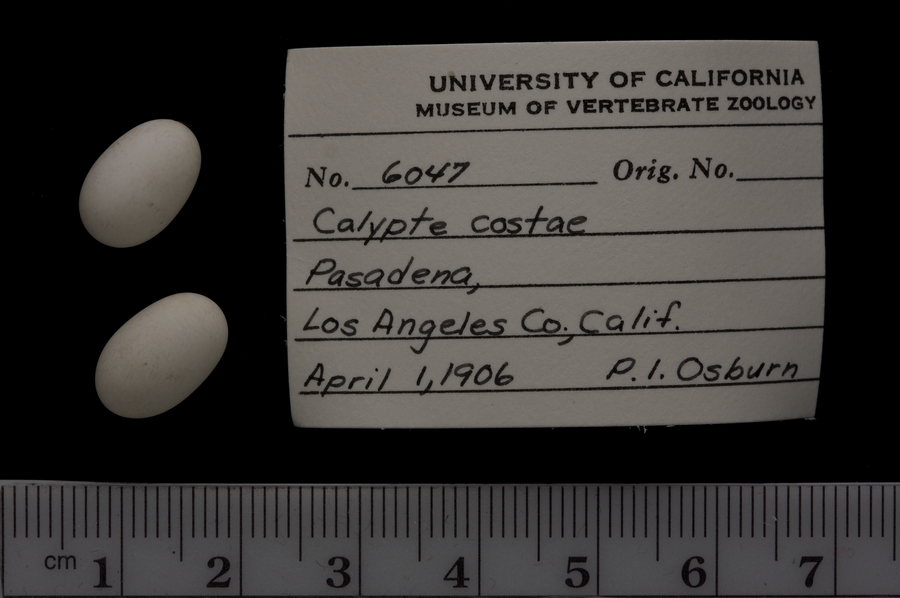 UNIVERSITY OF CALIFORNIA
MUSEUM OF VERTEBRATE ZOOLOGY
No. 6047 Orig. No.
Calypte costae
Pasadena,
Los Angeles Co., Calif.
April 1, 1906 P. I. Osburn
cm 1 2 3 4 5 6 7